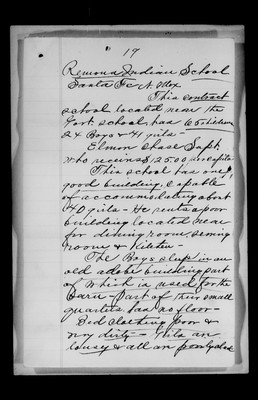 17
Ramona Indian School
Santa Fe N. Mex
This contract
school located near the
Govt school, has 65 children
24 Boys & 41 girls -
Elmon Chase Supt.
who receives $125.00 per capita
This school has one
good building, Capable
of accommodating about
40 girls - He rents a poor
building located near
for dining room sewing
room & kitchen -
The Boys sleep in an
old adobe building part
of which is used for the
barn - Part of their small
quarters has no floor -
Bed clothing poor &
very dirty - Girls are
lousy & all are poorly clad